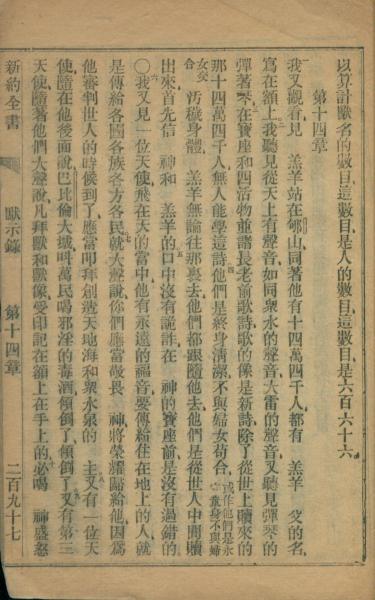 以算計獸名的數目這數目是人的數目這數目是六百六十六
第十四章
我又觀看見 羔羊站在郇山同著他有十四萬四千人都有 羔羊 父的名
寫在額上我聽見從天上有聲音如同衆水的聲音大雷的聲音又聽見彈琴的
彈著琴在寶座和四活物並諸長老前歌詩歌的像是新詩除了從世上贖來的
那十四萬四千人無人能學這詩他們是終身清潔不與婦女苟合或作他們是永童身不與婦
女交合汚穢身體 羔羊無論往那裏去他們都跟隨他去他們是從世人中間贖
出來首先信 神和 羔羊的口中沒有詭詐在 神的寶座前是沒有過錯的
〇我又見一位天使飛在天的當中他有永遠的福音要傳給住在地上的人就
是傳給各國各族各方各民就大聲說你們應當敬畏 神將榮耀歸給他因爲
他審判世人的時候到了應當叩拜創造天地海和衆水泉的 主又有一位天
使隨在他後面說巴比倫大城叫萬民喝邪淫的毒酒傾倒了傾倒了又有第三
天使隨著他們大聲說凡拜獸和獸像受印記在額上在手上的必喝 神盛怒
新約全書 默示錄 第十四章 二百九十七